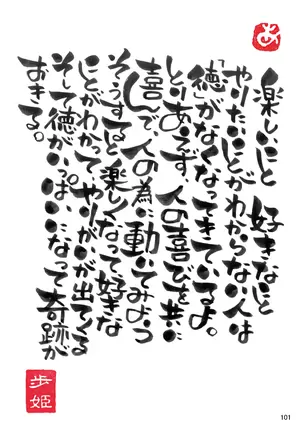 あ
楽しいこと 好きなこと
やりたいことがわからない人は
「徳」がなくなってきているよ。
とりあえず、人の喜びを共に
喜んで、人の為に動いてみよう
そうすると楽しくなって好きな
ことがわかって、やりがいが出てくる
そして徳がいっぱいになって奇跡が
おきる。
歩姫
101